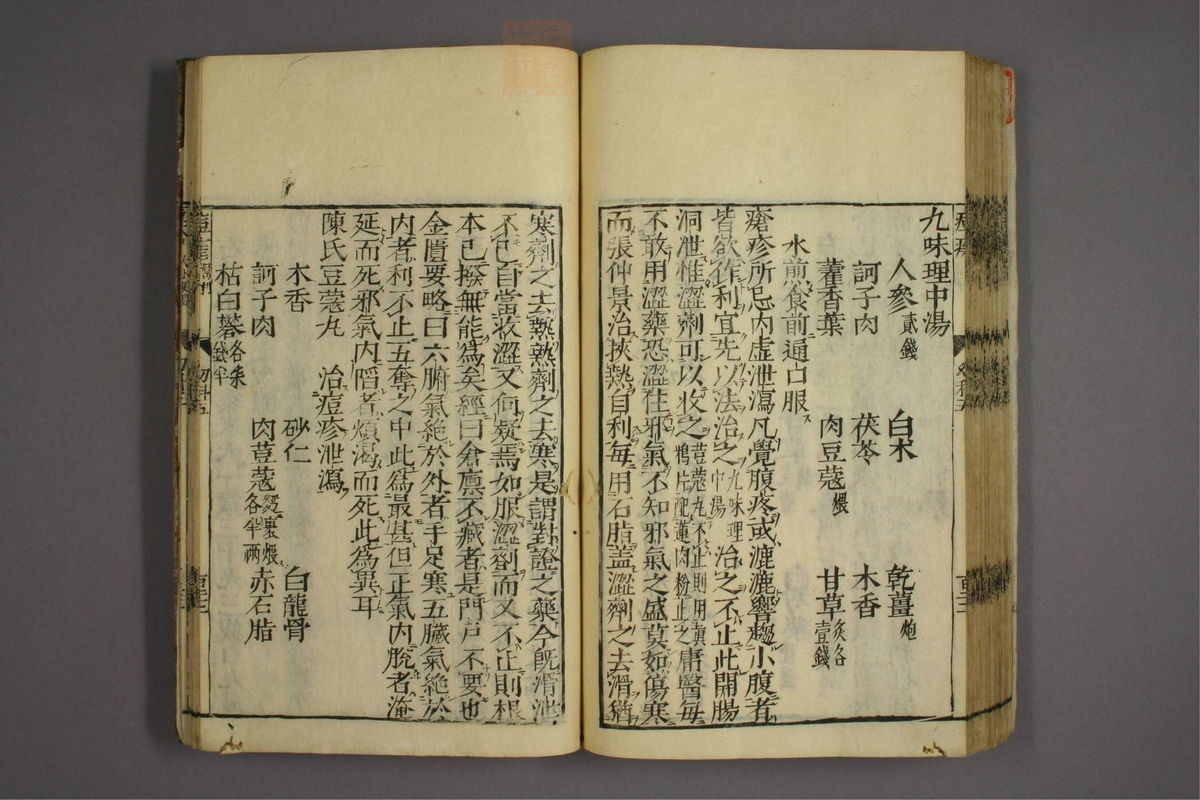 九味理中湯
人參貳錢 白朮 乾薑炮
訶子肉 茯苓 木香
藿香葉 肉豆蔻煨 甘草炙各壹錢
水煎食前通口服
瘡疹所忌内虚泄瀉凡覺腹疼或漉漉響趨小腹者
皆欲作利宜先以法治之九味理中湯治之不止此開腸
洞泄惟澀劑可以收之荳蔻丸不止則用鴉片配蓮肉粉止之庸醫每
不敢用澀藥恐澀住邪氣不知邪氣之盛莫如傷寒
而張仲景治挾熱自利每用石脂蓋澀劑之去滑猶
寒劑之去熱熱劑之去寒是謂對證之藥今既滑泄
不已自當收澀又何疑焉如服澀劑而又不止則根
本已撥無能爲矣經曰倉廪不藏者是門戸不要也
金匱要略曰六腑氣絶於外者手足寒五臓氣絶於
内者利不止五奪之中此爲最甚但正氣内脱者淹
延而死邪氣内䧟者煩渴而死此爲異耳
陳氏豆蔻丸 治痘疹泄瀉
木香 砂仁 白龍骨
訶子肉 肉荳蔻麪裹煨各半兩 赤石脂
枯白礬各柒錢半